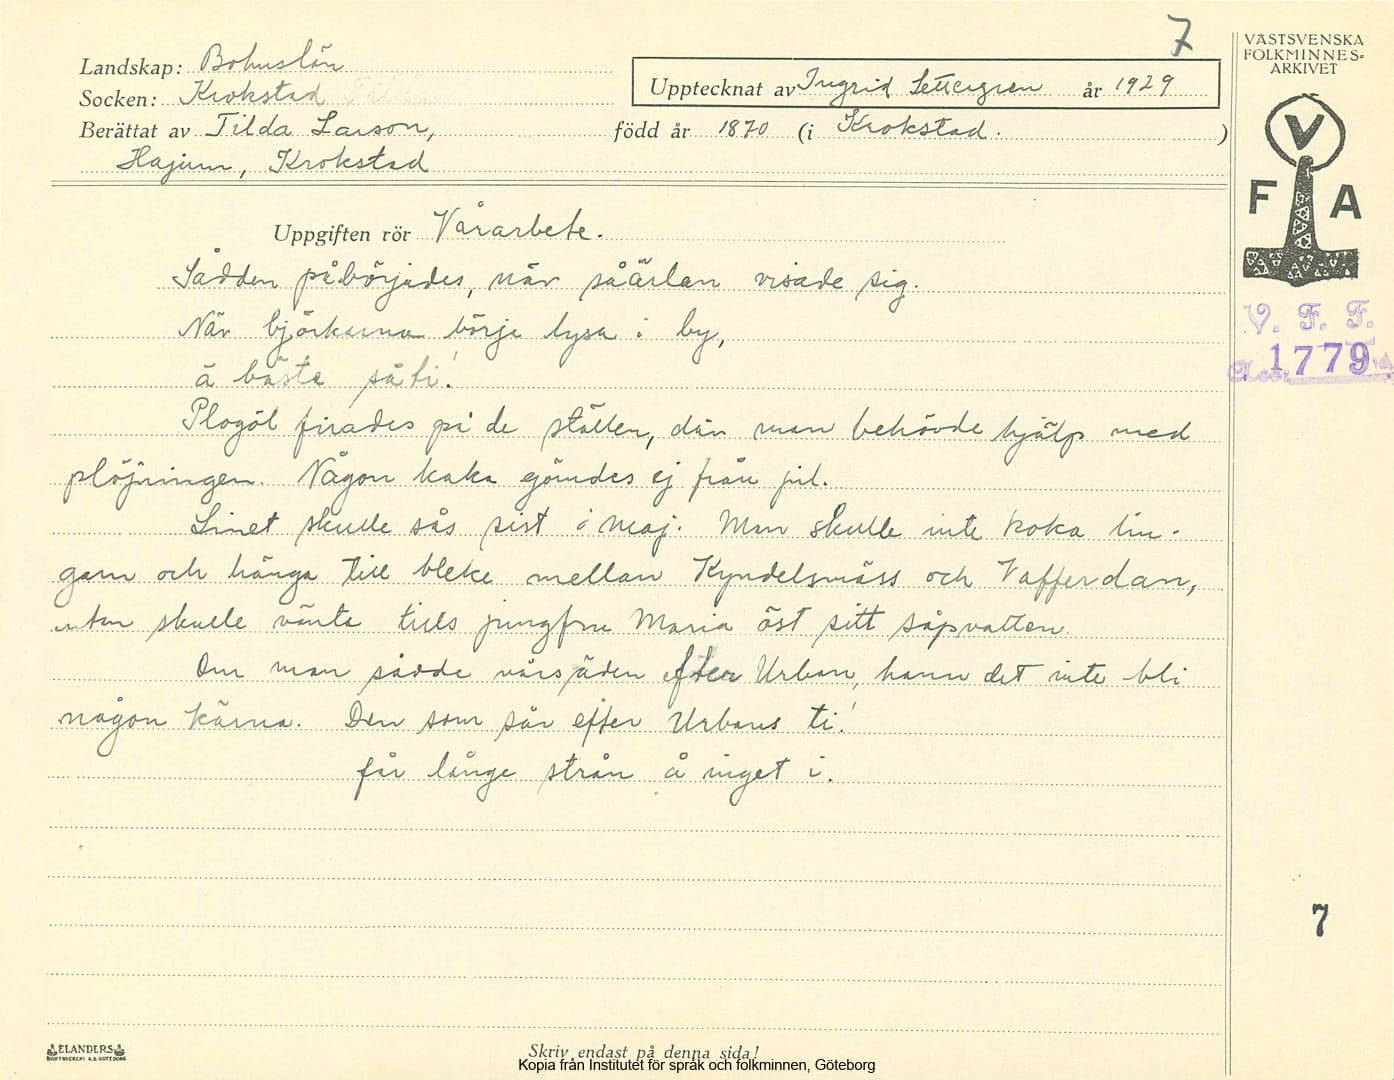 7
Landskap: Bohuslän
Socken: Krokstad
Upptecknat av Ingrid Settergren år 1929
Berättat av Tilda Larson, född år 1870 (i Krokstad. )
Hajum, Krokstad
VÄSTSVENSKA
FOLKMINNES-
ARKIVET
V
F A
V. F. F.
Acc. 1779
Uppgiften rör Vårarbete.
Sådden påbörjades, när såärlan visade sig.
När björkarna börje lysa i by,
ä bäste såti!
Plogöl firades på de ställen, där man behövde hjälp med
plöjningen. Någon kaka gömdes ej från jul.
Linet skulle sås sist i maj. Man skulle inte koka lin-
garn och hänga till bleke mellan Kyndelsmäss och Vafferdan,
utan skulle vänta tills jungfru Maria öst sitt såpvatten.
Om man sådde vårsäden efter Urban, hann det inte bli
någon kärna. Den som sår efter Urbans ti!
får långe strån å inget i.
7
ELANDERS
BOKTRYCKERI A.B. GÖTEBORG
Skriv endast på denna sida!
Kopia från Institutet för språk och folkminnen, Göteborg